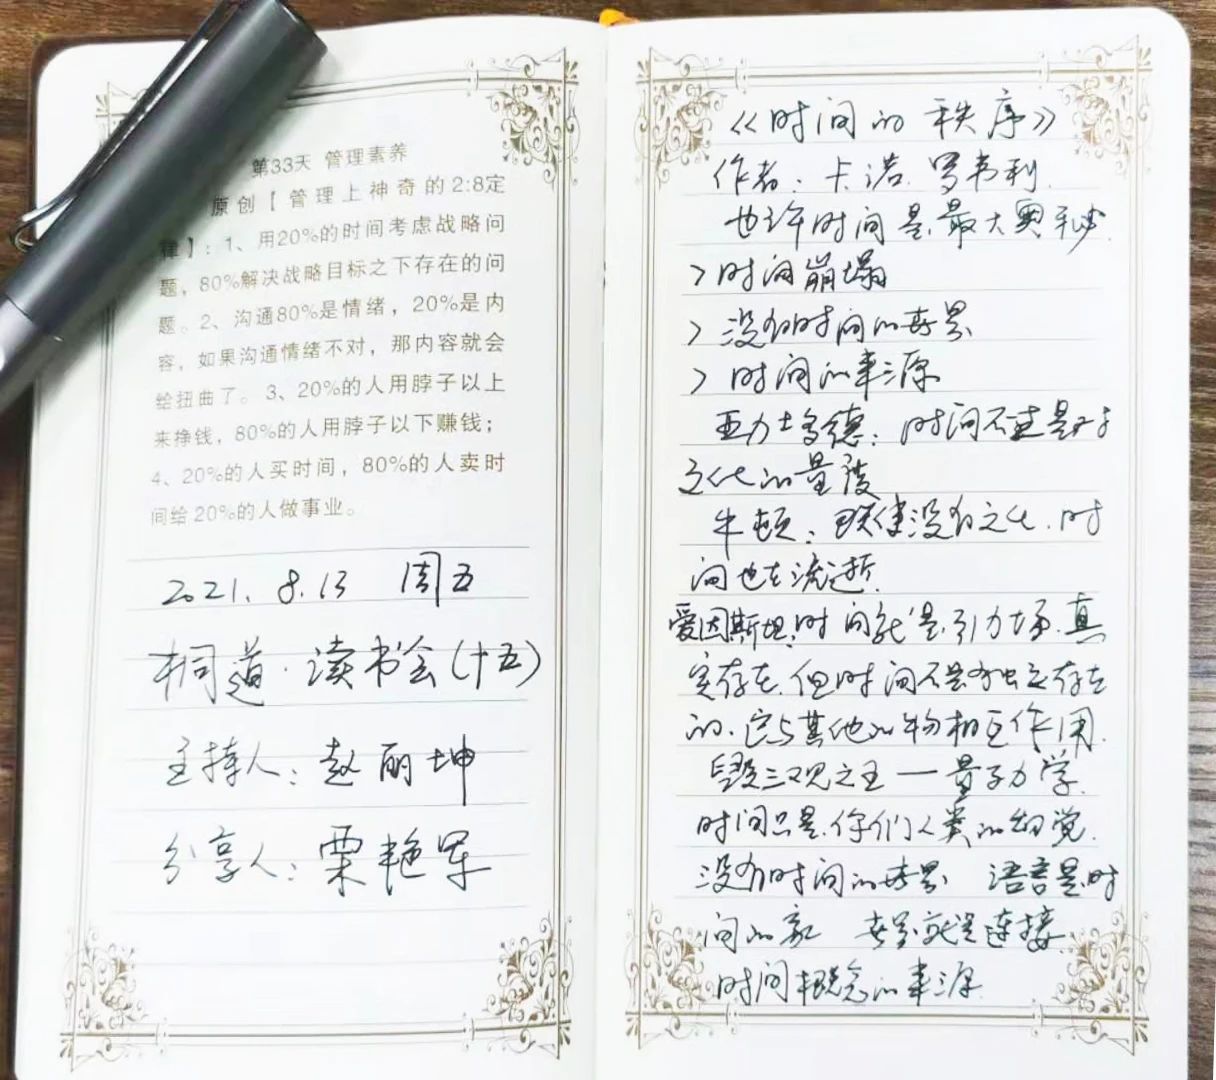 第33天 管理素养
原创【管理上神奇的2:8定
律】:1、用20%的时间考虑战略问
题,80%解决战略目标之下存在的问
题。2、沟通80%是情绪,20%是内
容,如果沟通情绪不对,那内容就会
给扭曲了。3、20%的人用脖子以上
来挣钱,80%的人用脖子以下赚钱;
4、20%的人买时间,80%的人卖时
间给20%的人做事业。
2021.8.13 周五
桐道·读书会(十五)
主持人:赵丽坤
分享人:栗艳军
《时间的秩序》
作者:卡洛.罗韦利
也许时间是最大奥秘
>时间崩塌
>没有时间的世界
>时间的来源
亚力士多德:时间不过是对于
变化的量度
牛顿:既使没有变化.时
间也在流逝
爱因斯坦:时间就是引力场.真
实存在.但时间不是独立存在
的.它与其他的物相互作用.
毁三观之王一量子力学.
时间只是你们人类的幻觉.
没有时间的世界 语言是时
间的家 世界就是连接
时间概念的来源